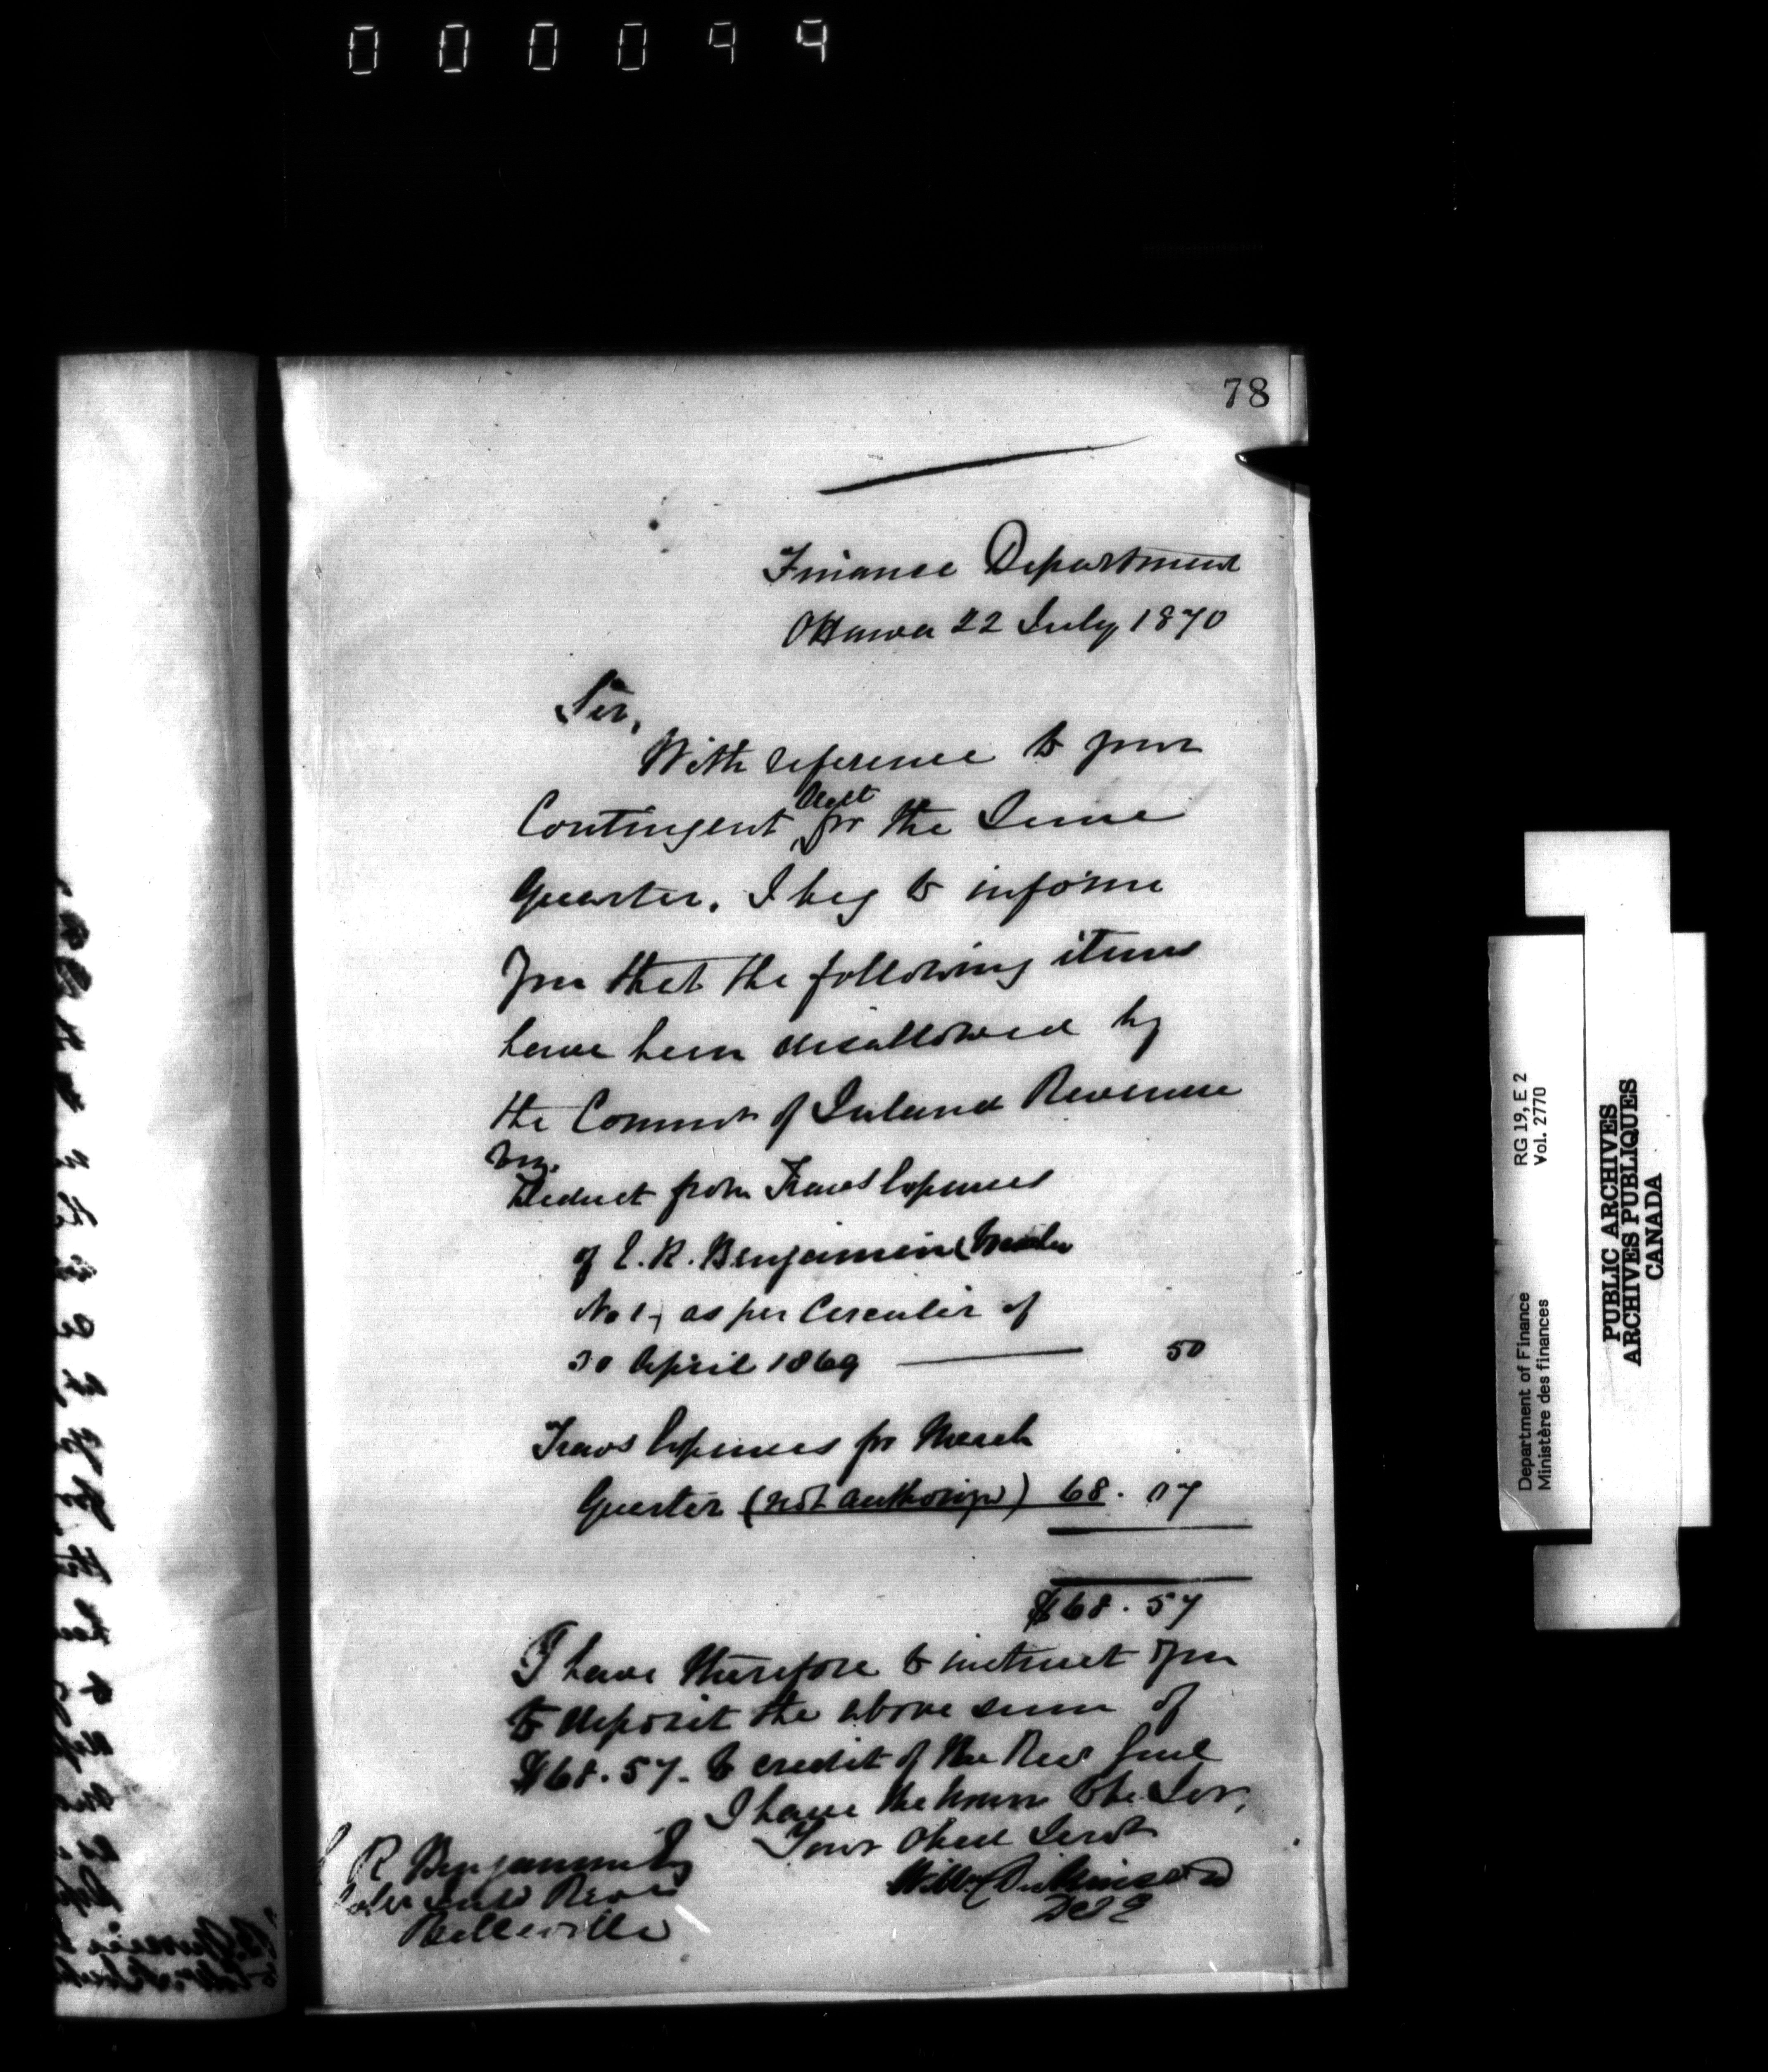 000044
78
Finance Department
Ottawa 22 July, 1870
Sir,
With reference to your
Contingent Acct for the June
Quarter, I beg to inform
you that the following items
have been disallowed by
the Commr of Inland Revenue
Deduct from Travs Expenses
of E. R. Benjamin
No 1, as per Circular of
30 April 1869 50
Travs Expenses for March
Quarter (not authorizd) 68. 07
$68. 57
I have therefore to instruct you
to deposit the above sum of
$68. 57. to credit of the Recr Genl
I have the honor to be Sir,
Your Obed Servt
Willm Dickinson
R Benjamin Esq
Inld Revn
Belleville
RG 19, E 2
Vol. 2770
Department of Finance
Ministère des finances
PUBLIC ARCHIVES
ARCHIVES PUBLIQUES
CANADA